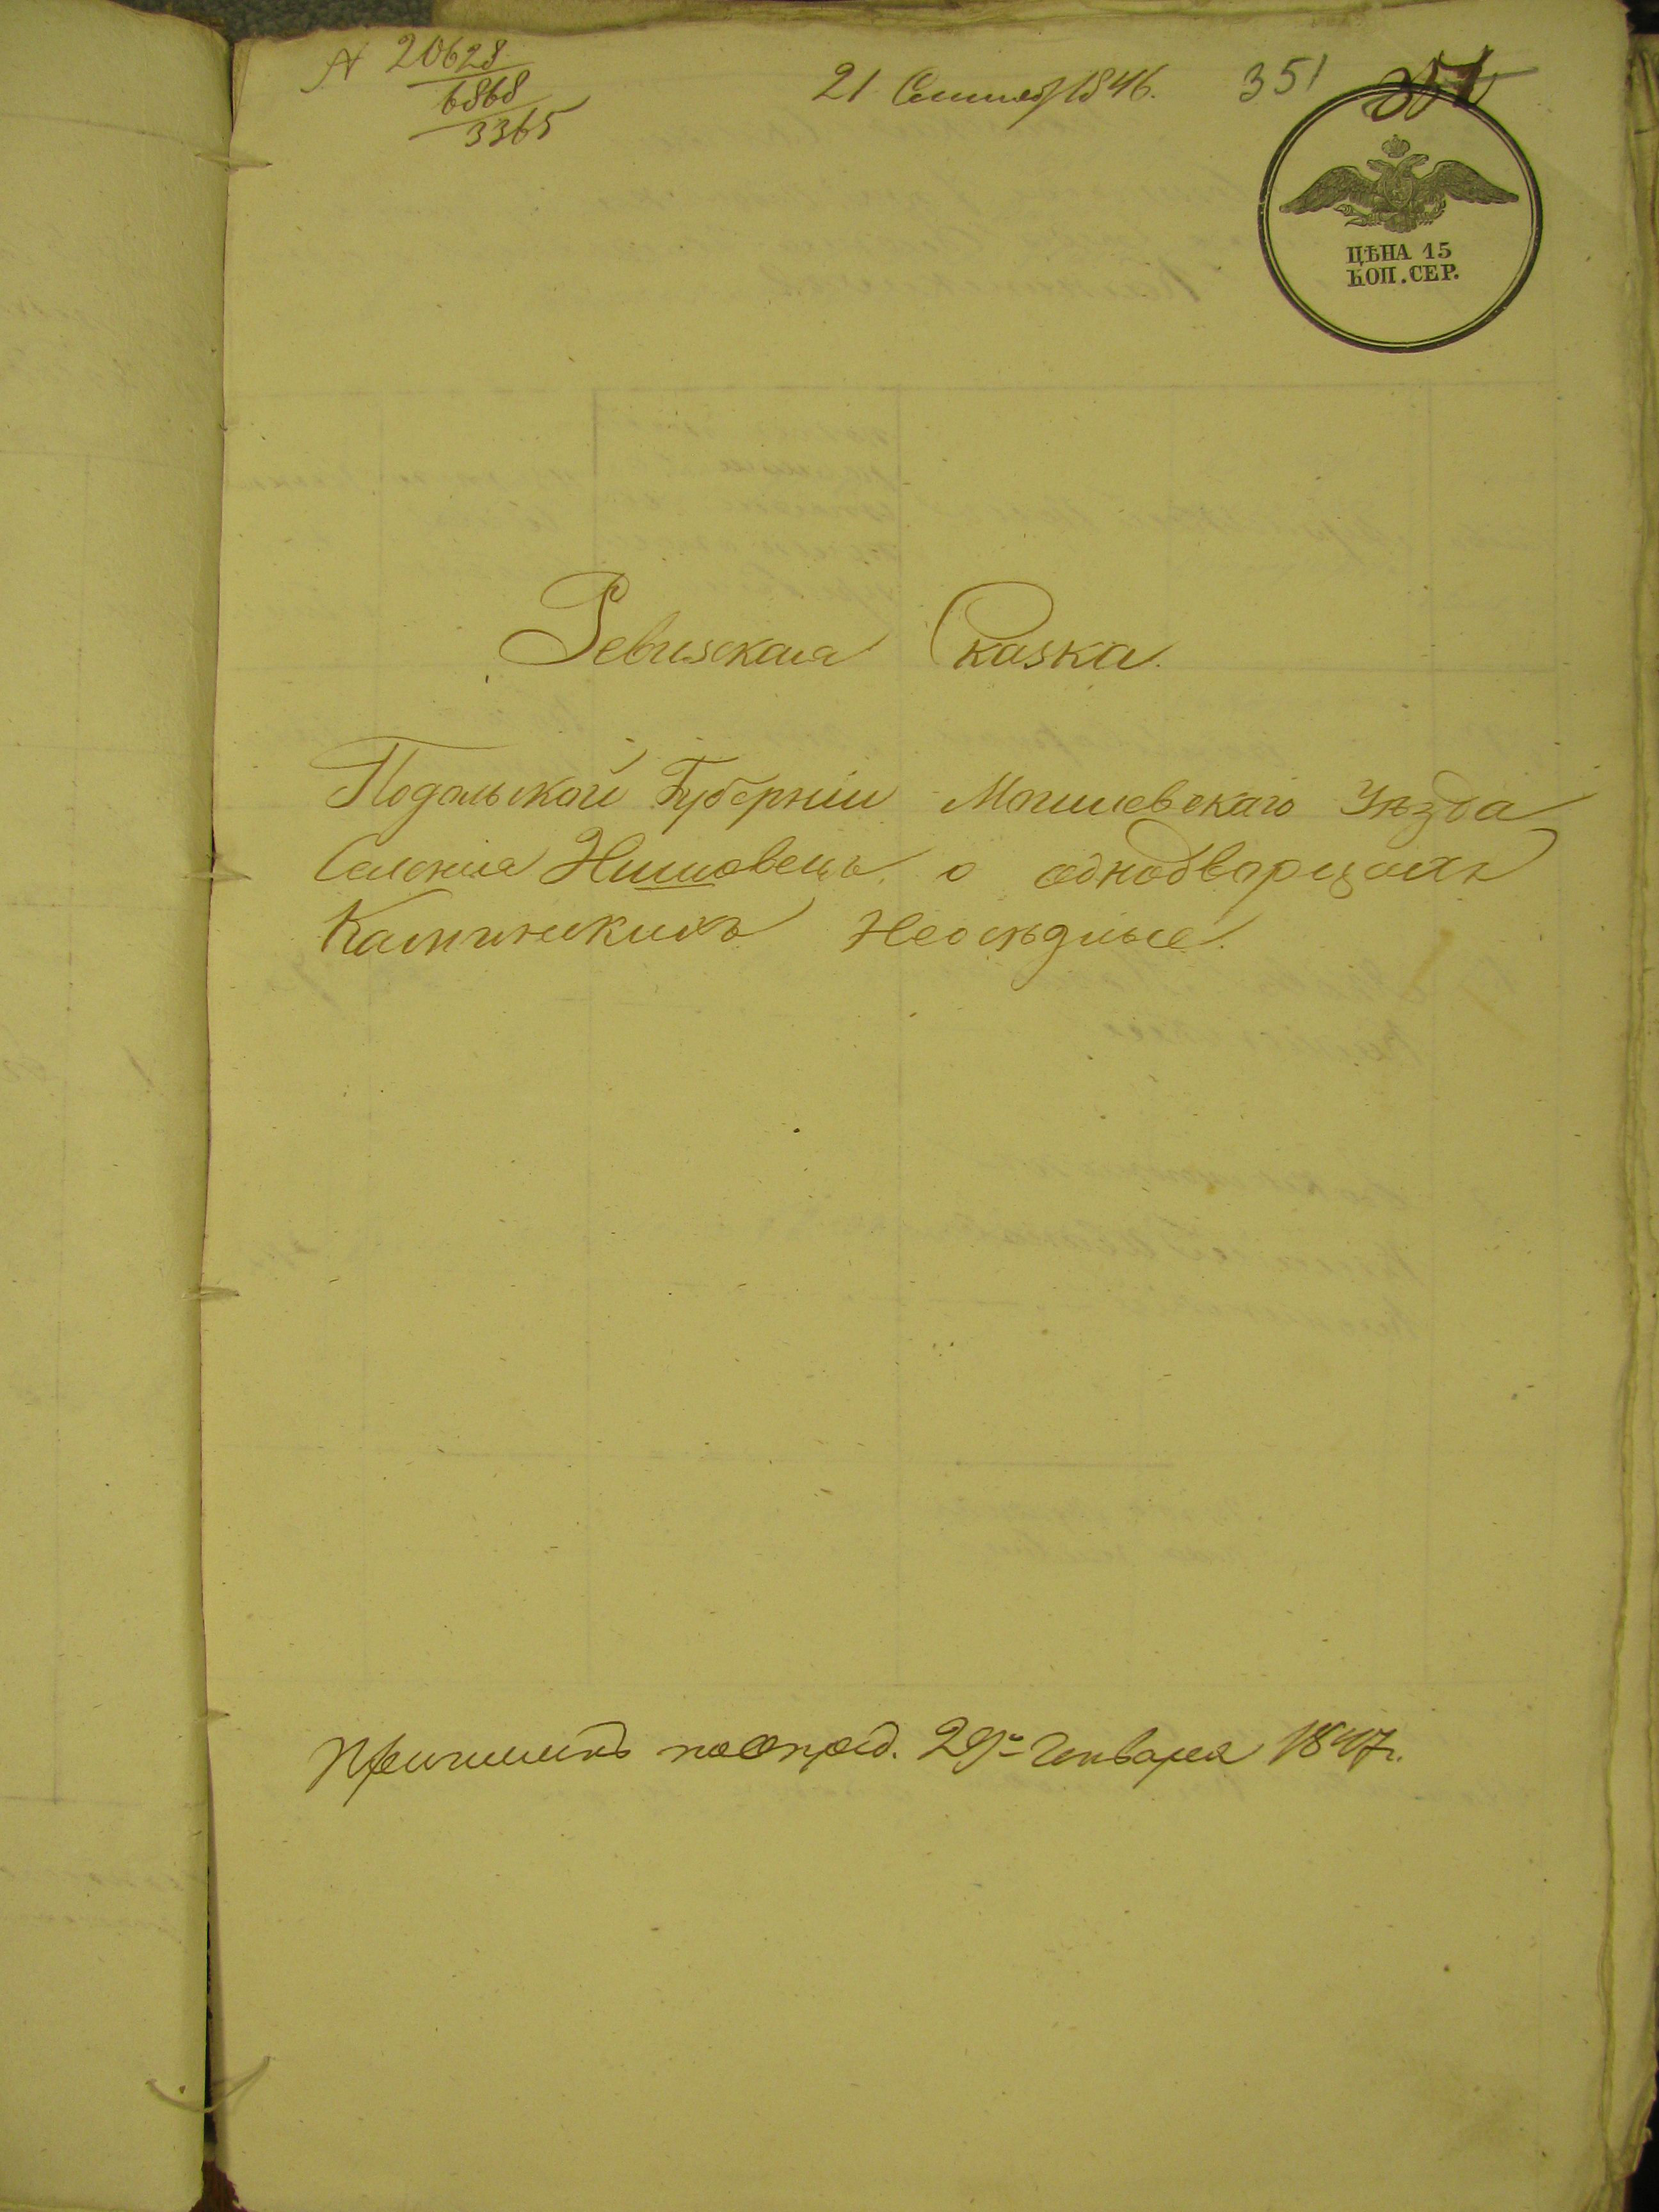 № 20628
6868
3365
21 Сентяб 1846. 351
ЦѢНА 15
КОП. СЕР.
Ревизская Сказка.
Подольской Губерніи Могилевскаго Уѣзда
Селенія Нишовецъ о однодворцахъ
Калинскихъ Неосѣдлые.
29го Генваря 1847г.